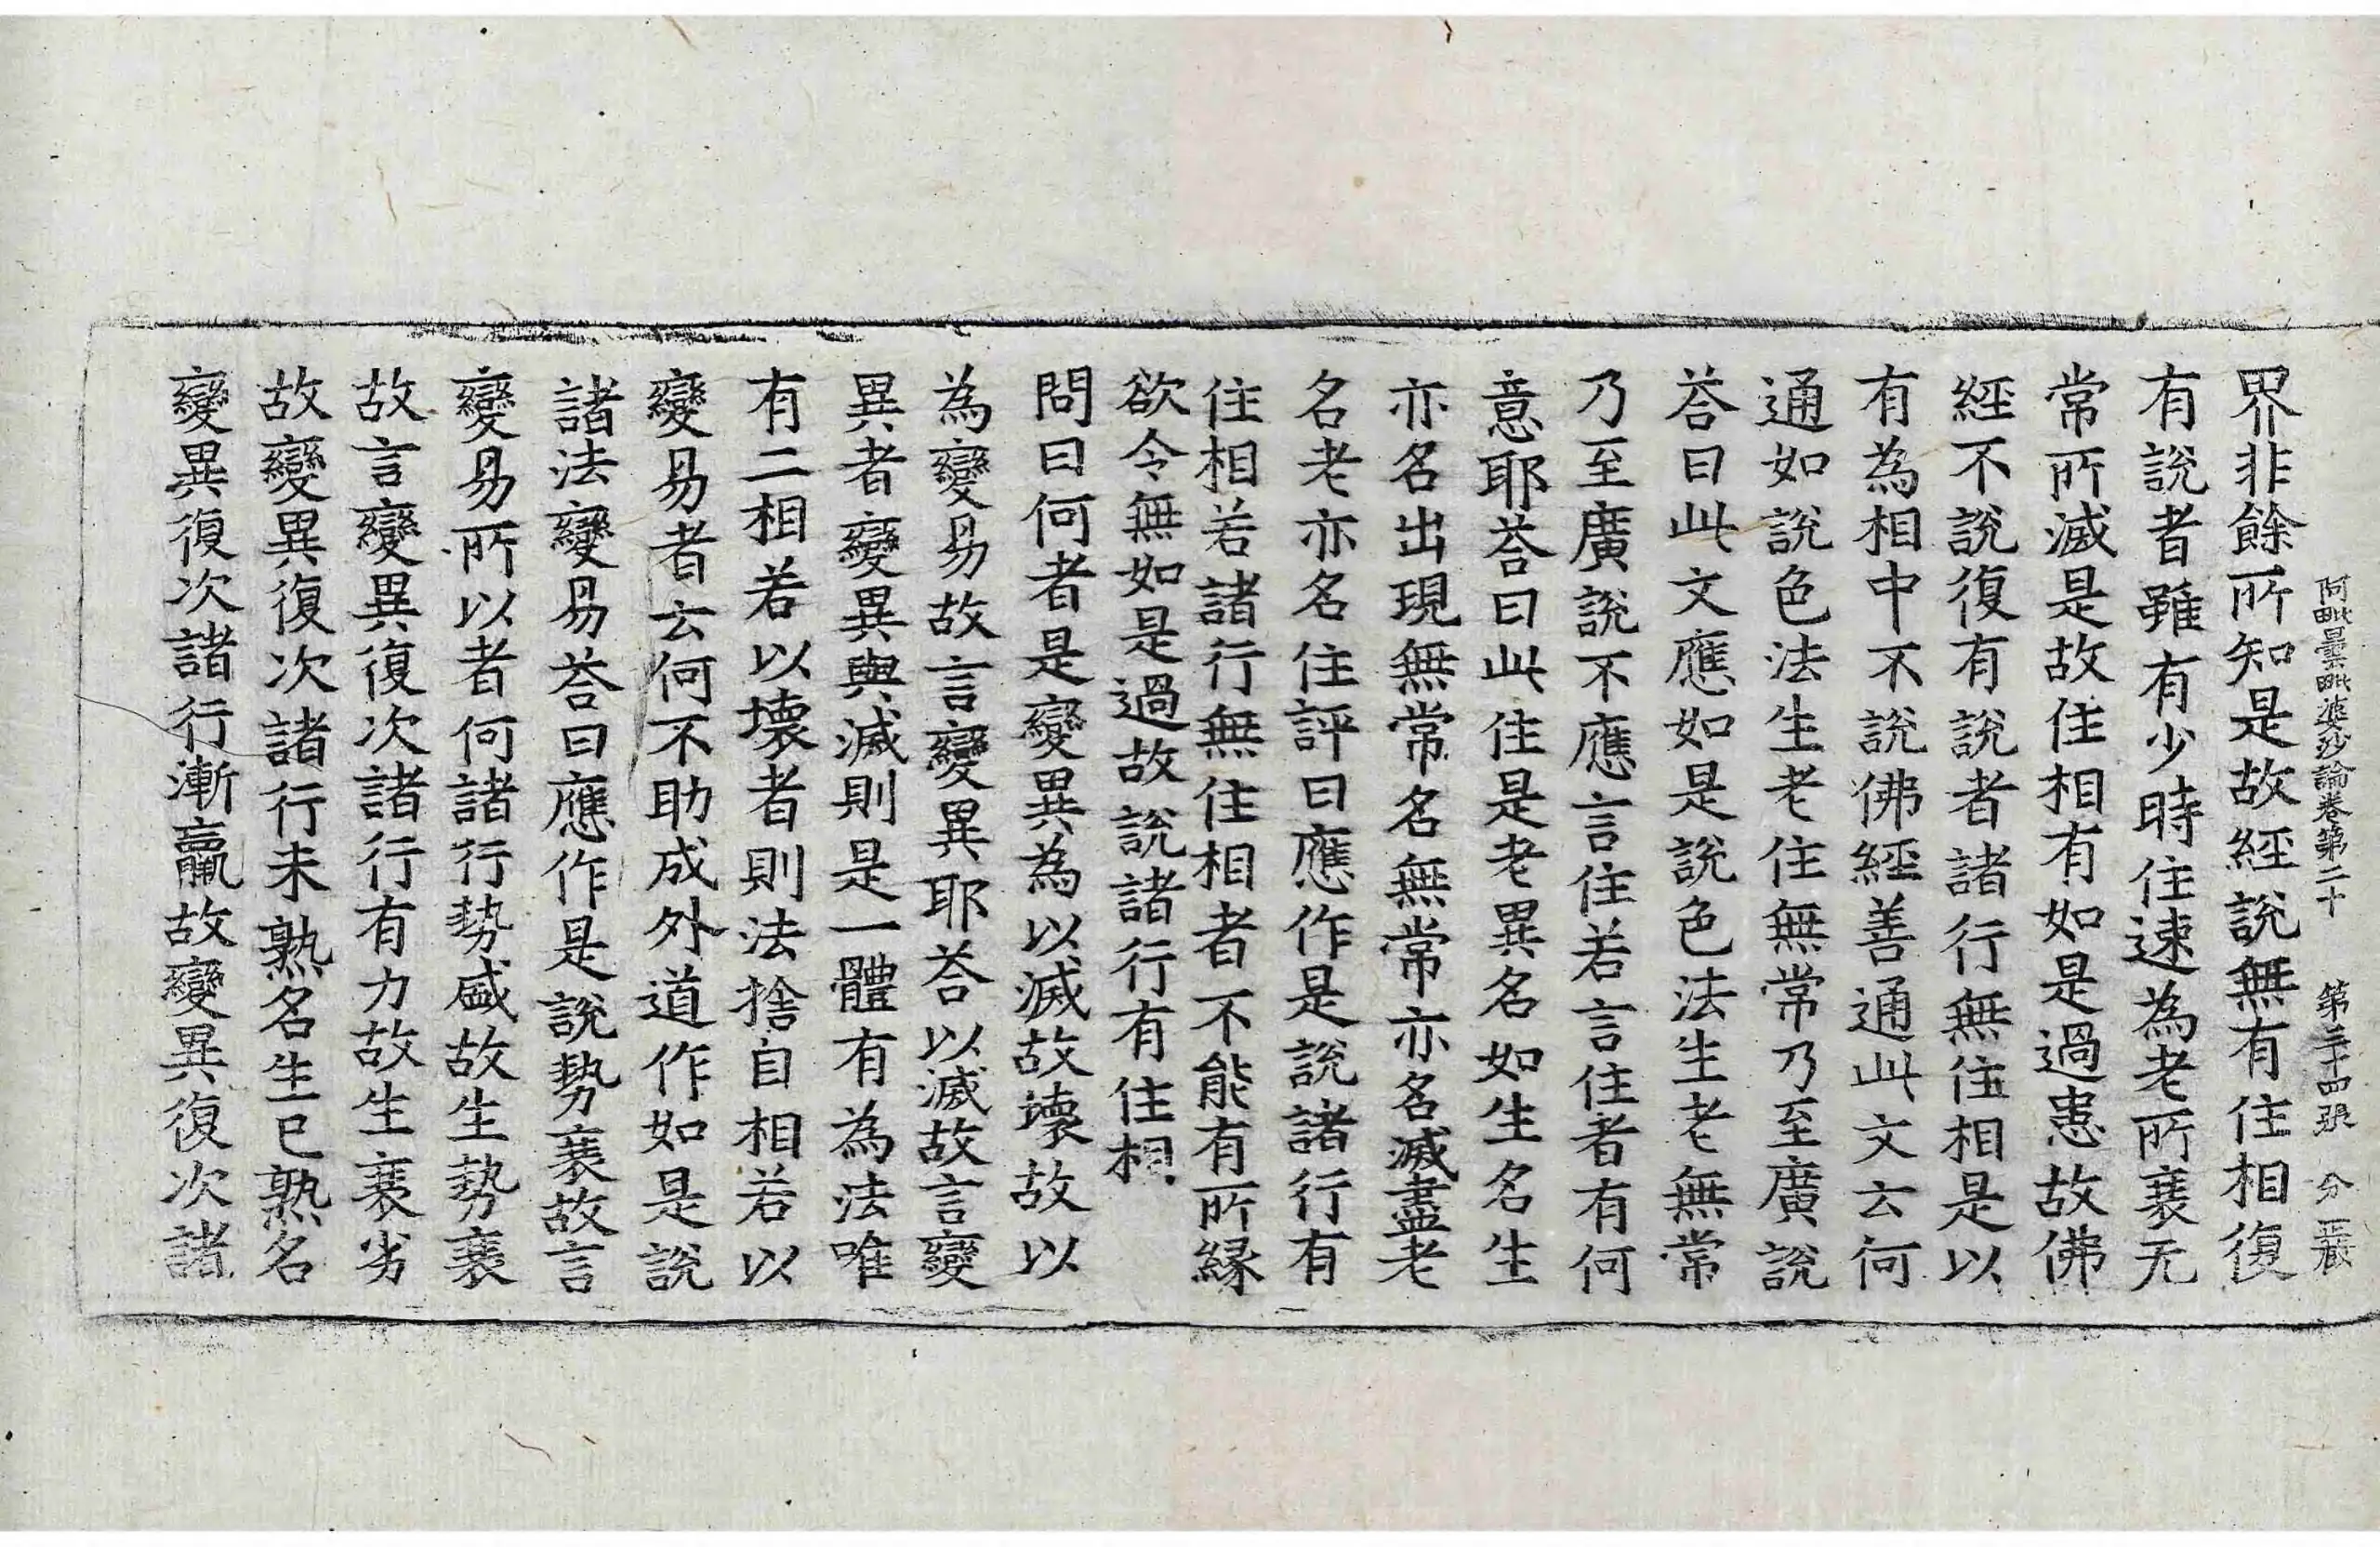 阿毗曇毗婆沙論卷第二十　第三十四張　分
界非餘所知是故經說無有住相復
有說者雖有少時住速為老所衰无
常所滅是故住相有如是過患故佛
經不說復有說者諸行無住相是以
有為相中不說佛經善通此文云何
通如說色法生老住無常乃至廣說
荅曰此文應如是說色法生老無常
乃至廣說不應言住若言住者有何
意耶荅曰此住是老異名如生名生
亦名出現無常名無常亦名滅盡老
名老亦名住評曰應作是說諸行有
住相若諸行無住相者不能有所緣
欲令無如是過故說諸行有住相
問曰何者是變異為以滅故壞故以
為變易故言變異耶荅以滅故言變
異者變異與滅則是一體有為法唯
有二相若以壞者則法捨自相若以
變易者云何不助成外道作如是說
諸法變易荅曰應作是說勢衰故言
變易所以者何諸行勢盛故生勢衰
故言變異復次諸行有力故生衰劣
故變異復次諸行未熟名生已熟名
變異復次諸行漸羸故變異復次諸